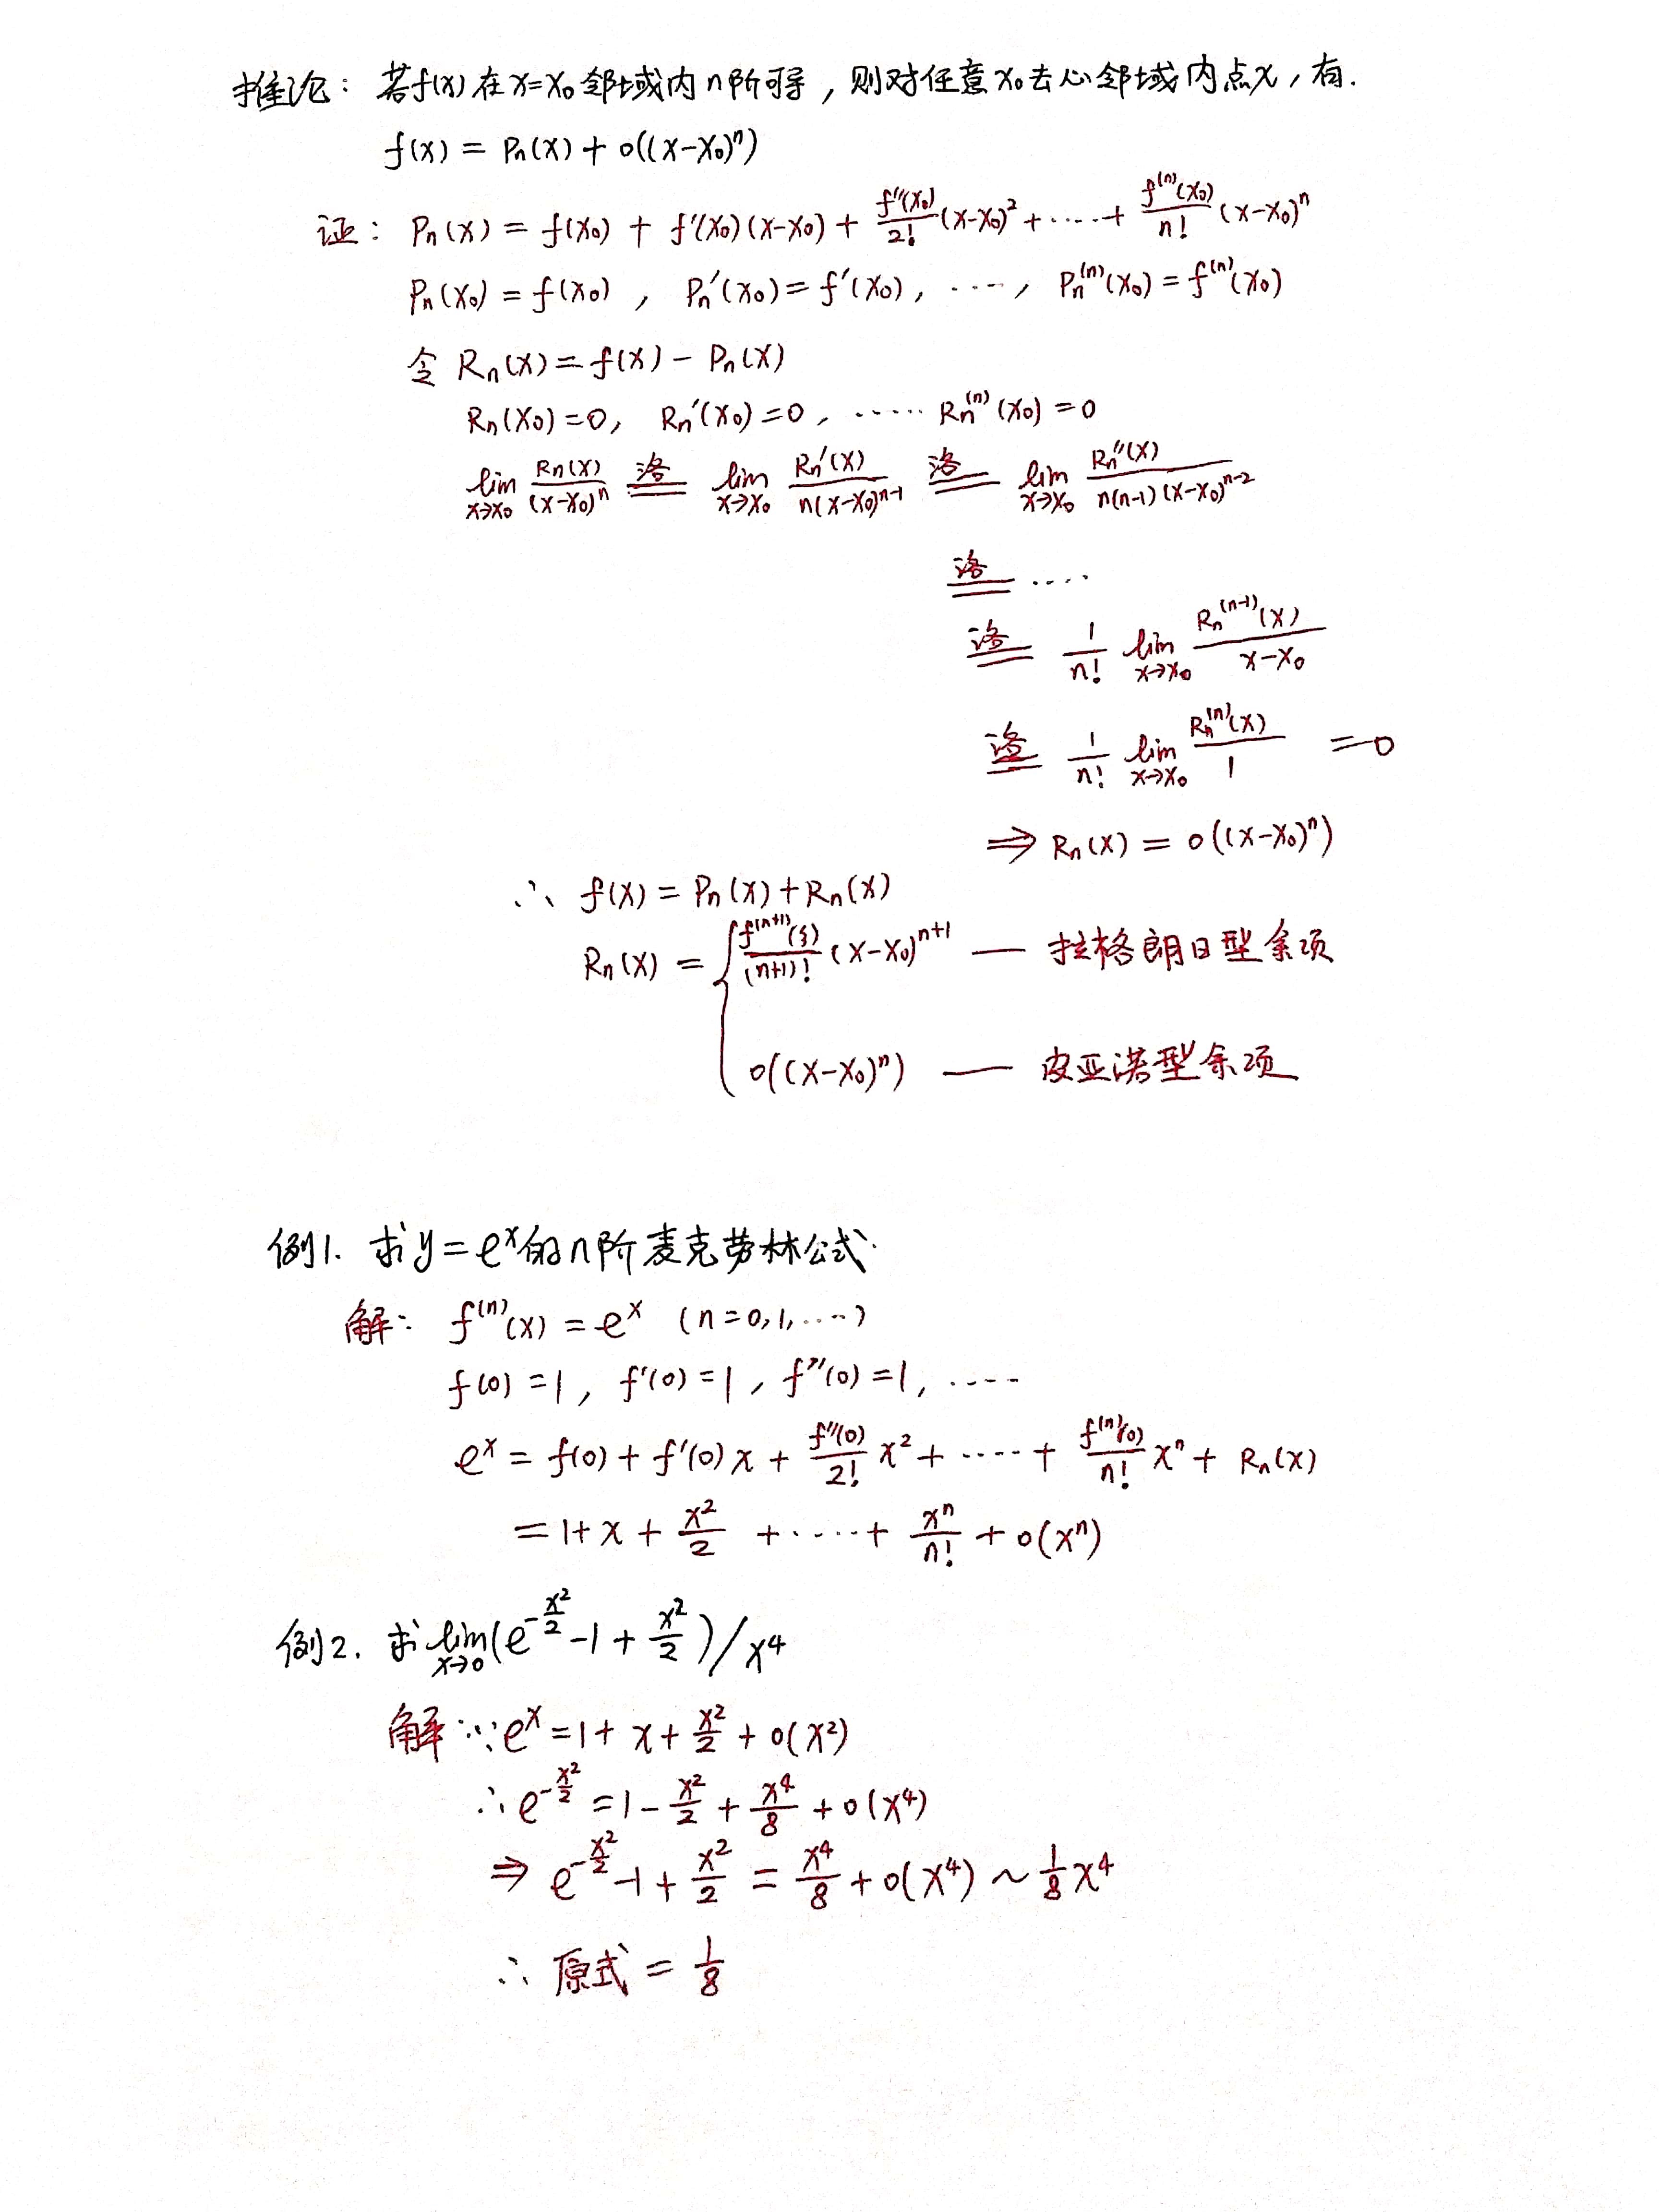 推论： 若f(x)在x=x₀邻域内n阶可导，则对任意x₀去心邻域内点x，有.
f(x) = Pₙ(x) + o((x-x₀)ⁿ)
证： Pₙ(x) = f(x₀) + f'(x₀)(x-x₀) + f''(x₀)/2! (x-x₀)² + ····· + f⁽ⁿ⁾(x₀)/n! (x-x₀)ⁿ
Pₙ(x₀) = f(x₀) ， Pₙ'(x₀) = f'(x₀)， ····， Pₙ⁽ⁿ⁾(x₀) = f⁽ⁿ⁾(x₀)
令 Rₙ(x) = f(x) - Pₙ(x)
Rₙ(x₀) = 0， Rₙ'(x₀) = 0， ······ Rₙ⁽ⁿ⁾(x₀) = 0
lim x→x₀ Rₙ(x)/(x-x₀)ⁿ 洛== lim x→x₀ Rₙ'(x)/n(x-x₀)ⁿ⁻¹ 洛== lim x→x₀ Rₙ''(x)/n(n-1)(x-x₀)ⁿ⁻²
洛== ····
洛== 1/n! lim x→x₀ Rₙ⁽ⁿ⁻¹⁾(x)/x-x₀
洛== 1/n! lim x→x₀ Rₙ⁽ⁿ⁾(x)/1 = 0
⇒ Rₙ(x) = o((x-x₀)ⁿ)
∴ f(x) = Pₙ(x) + Rₙ(x)
Rₙ(x) = { f⁽ⁿ⁺¹⁾(ξ)/(n+1)! (x-x₀)ⁿ⁺¹ — 拉格朗日型余项
o((x-x₀)ⁿ) — 皮亚诺型余项
例1. 求y=eˣ的n阶麦克劳林公式.
解： f⁽ⁿ⁾(x) = eˣ (n=0,1,····)
f(0) = 1， f'(0) = 1， f''(0) = 1， ····
eˣ = f(0) + f'(0)x + f''(0)/2! x² + ····· + f⁽ⁿ⁾(0)/n! xⁿ + Rₙ(x)
= 1 + x + x²/2 + ····· + xⁿ/n! + o(xⁿ)
例2. 求 lim x→0 (e^(-x²/2) - 1 + x²/2)/x⁴
解：∵ eˣ = 1 + x + x²/2 + o(x²)
∴ e^(-x²/2) = 1 - x²/2 + x⁴/8 + o(x⁴)
⇒ e^(-x²/2) - 1 + x²/2 = x⁴/8 + o(x⁴) ~ 1/8 x⁴
∴ 原式 = 1/8